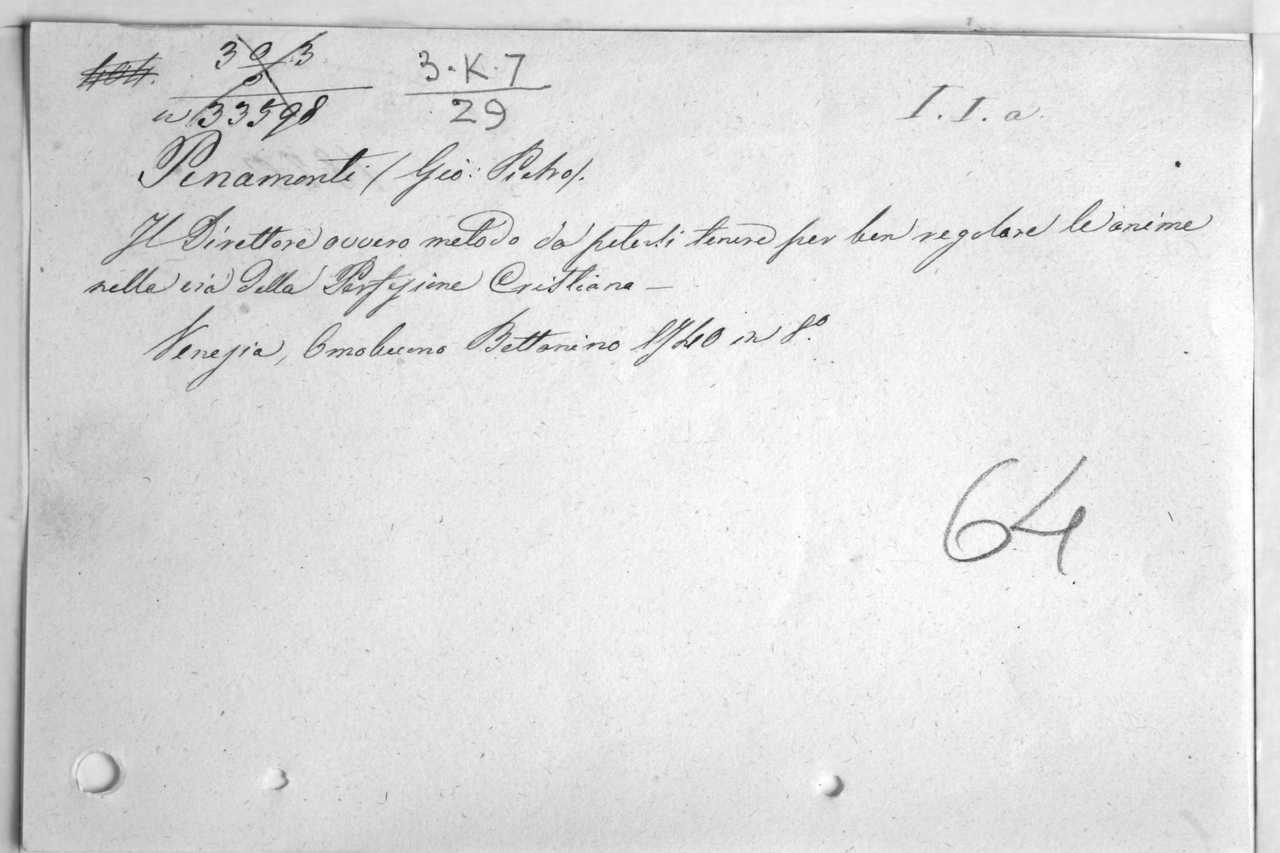 404.
3 9 3
5
3·K·7
29
I. I. a.
n 133598
Pinamonti (Giò: Pietro).
Il Direttore ovvero metodo da potersi tenere per ben regolare le anime
nella via della Perfezione Cristiana —
Venezia, Omobuono Bettanino 1740 in 8º.
64